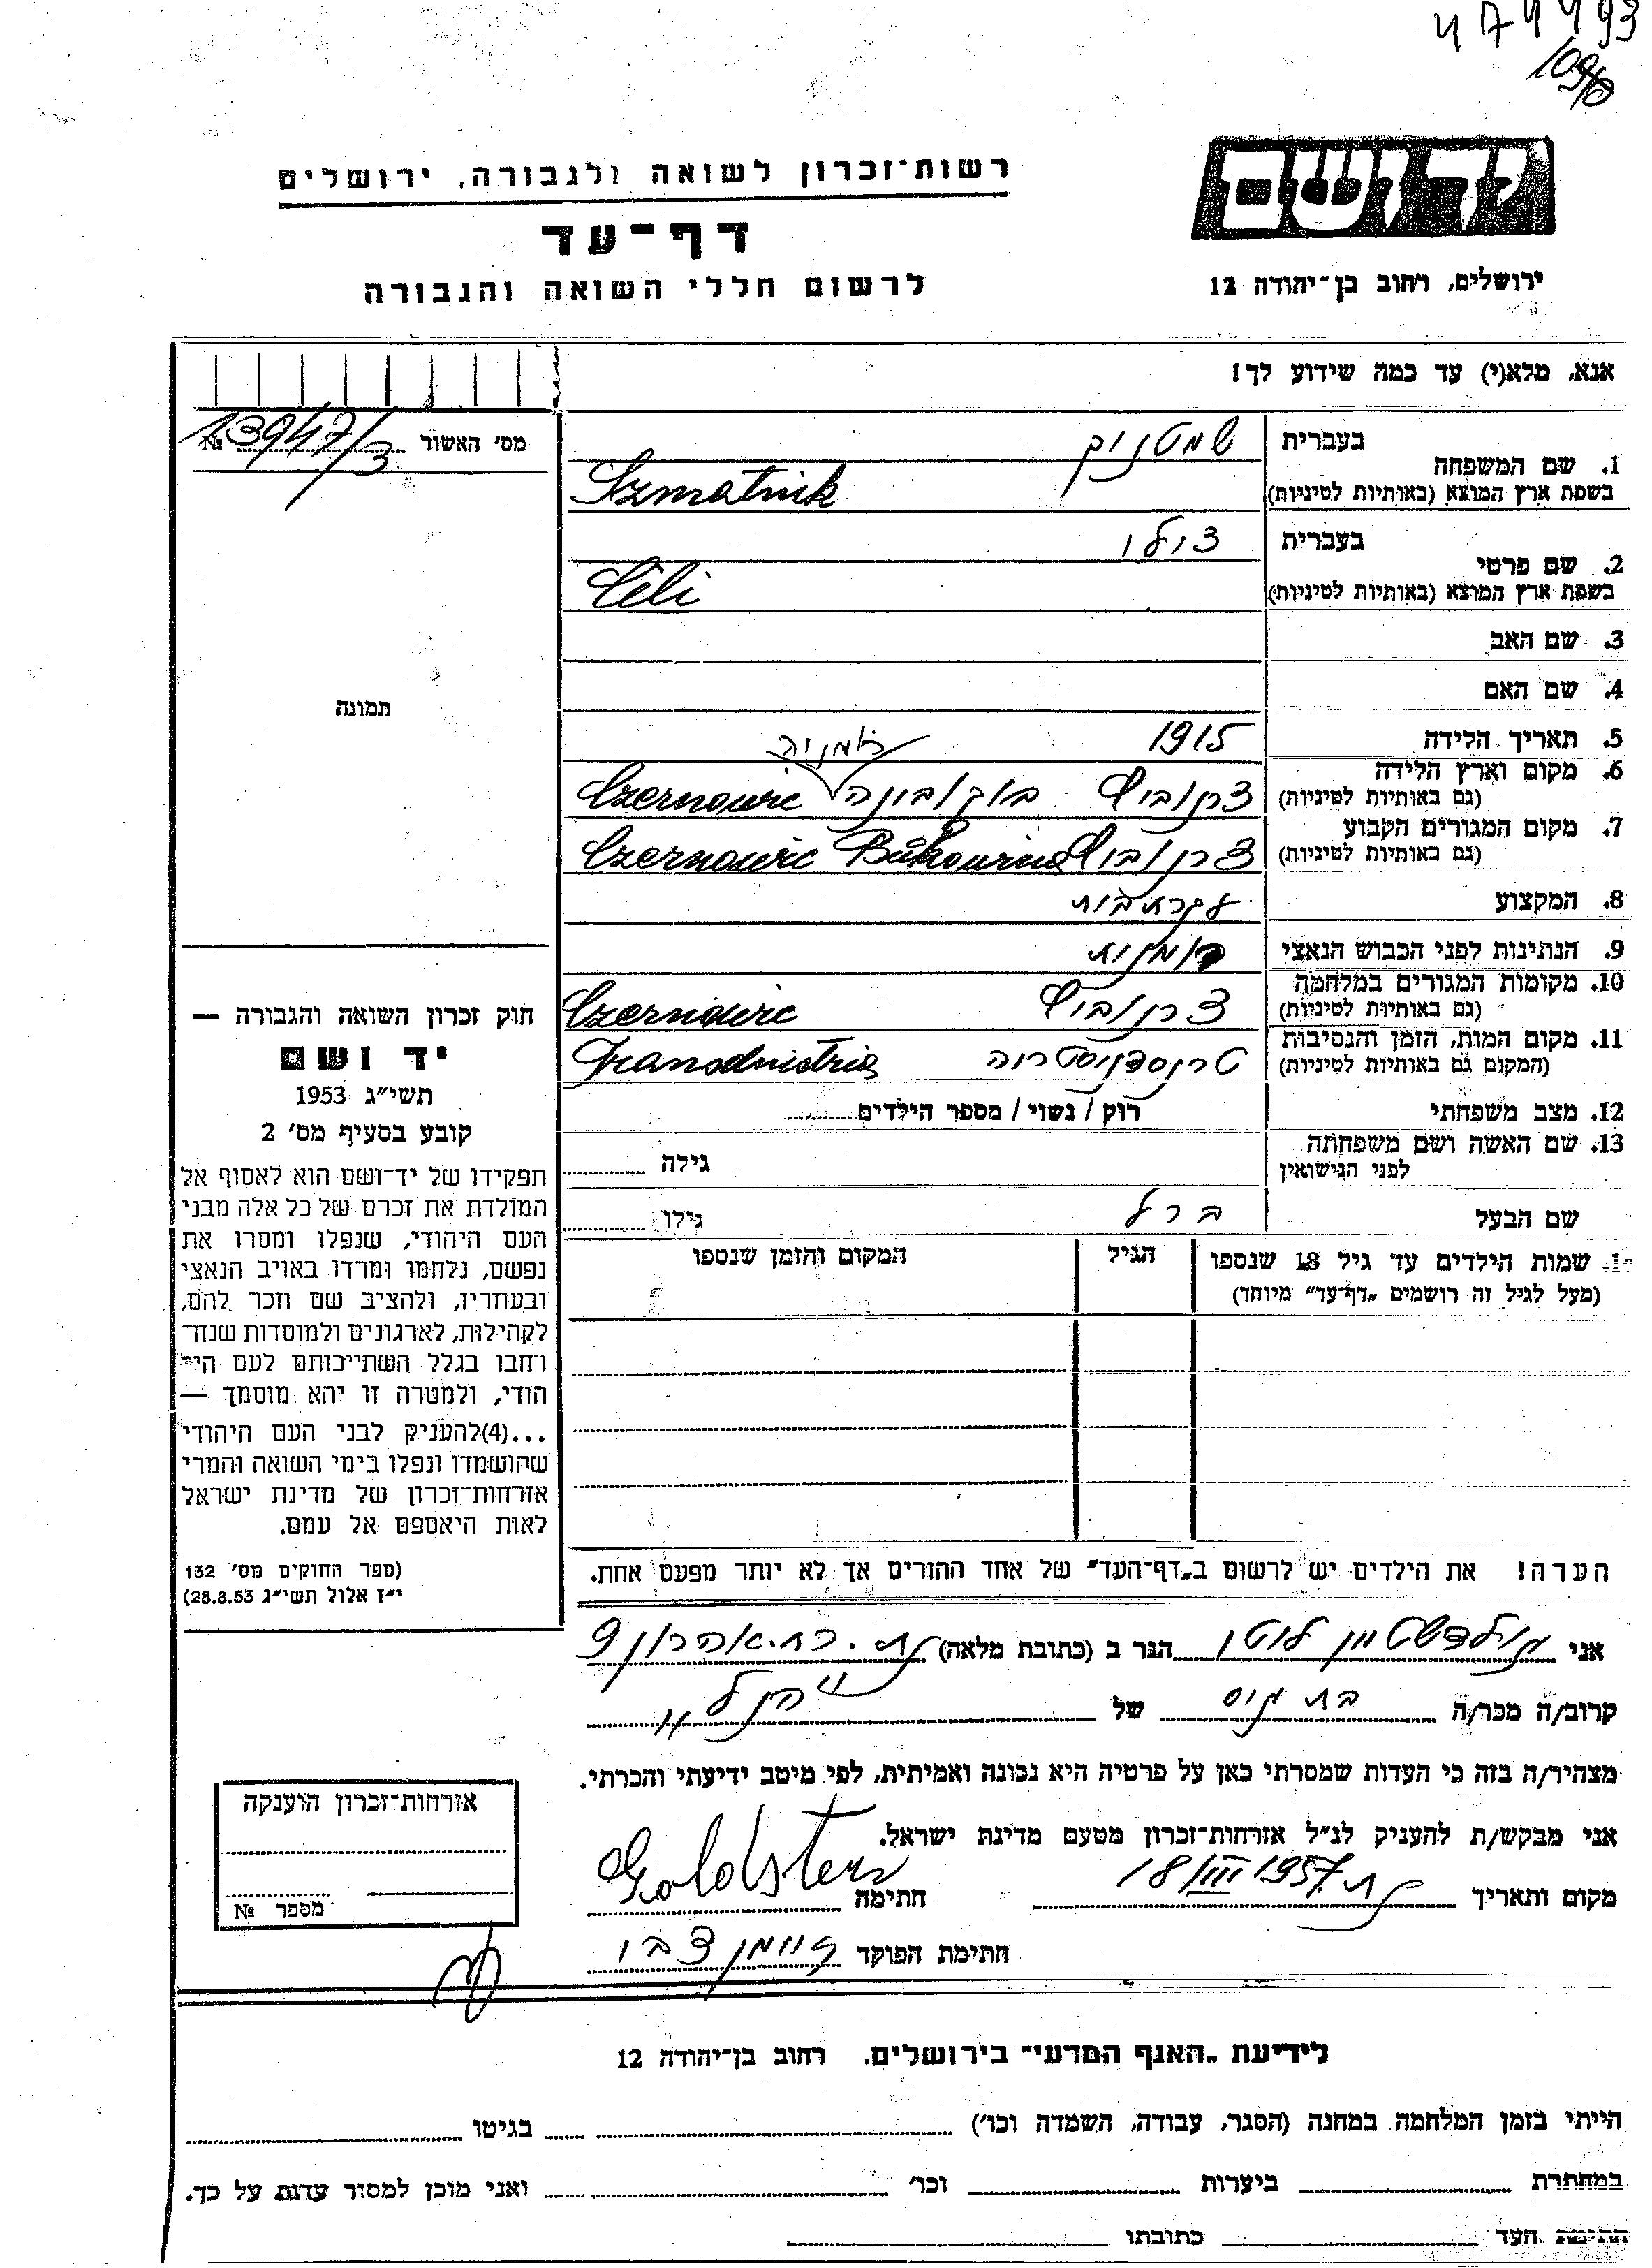 474493
יד ושם
רשות־זכרון לשואה ולגבורה, ירושלים
דף־עד
לרשום חללי השואה והגבורה
ירושלים, רחוב בן־יהודה 12
אנא, מלא(י) עד כמה שידוע לך!
מס׳ האשור № 13947/3
1. שם המשפחה בעברית שמטניק
בשפת ארץ המוצא (באותיות לטיניות) Szmatnik
2. שם פרטי בעברית צילי
בשפת ארץ המוצא (באותיות לטיניות) Cèli
3. שם האב
4. שם האם
תמונה
5. תאריך הלידה 1915
רומניה
6. מקום וארץ הלידה (גם באותיות לטיניות) צרנוביץ בוקובינה Czernowic
7. מקום המגורים הקבוע (גם באותיות לטיניות) צרנוביץ Czernowic Bukowina
8. המקצוע עקרת בית
9. הנתינות לפני הכבוש הנאצי רומנית
10. מקומות המגורים במלחמה (גם באותיות לטיניות) צרנוביץ Czernowic
11. מקום המות, הזמן והנסיבות (המקום גם באותיות לטיניות) טרנסדניסטריה Transdnistria
12. מצב משפחתי רוק / נשוי / מספר הילדים
13. שם האשה ושם משפחתה לפני הנישואין גילה
שם הבעל ברל גילו
שמות הילדים עד גיל 18 שנספו הגיל המקום והזמן שנספו
(מעל לגיל זה רושמים „דף־עד״ מיוחד)
חוק זכרון השואה והגבורה —
יד ושם
תשי״ג 1953
קובע בסעיף מס׳ 2
תפקידו של יד־ושם הוא לאסוף אל
המולדת את זכרם של כל אלה מבני
העם היהודי, שנפלו ומסרו את
נפשם, נלחמו ומרדו באויב הנאצי
ובעוזריו, ולהציב שם וזכר להם,
לקהילות, לארגונים ולמוסדות שנח־
רחבו בגלל השתייכותם לעם הי־
הודי, ולמטרה זו יהא מוסמך —
...(4)להעניק לבני העם היהודי
שהושמדו ונפלו בימי השואה והמרי
אזרחות־זכרון של מדינת ישראל
לאות היאספם אל עמם.
(ספר החוקים מס׳ 132
י״ז אלול תשי״ג 28.8.53)
הערה! את הילדים יש לרשום ב„דף־העד״ של אחד ההורים אך לא יותר מפעם אחת.
אני גולדשטיין לוטי הגר ב (כתובת מלאה) אהרון 9
קרוב/ה מכר/ה בת גיס של הנ"ל
מצהיר/ה בזה כי העדות שמסרתי כאן על פרטיה היא נכונה ואמיתית, לפי מיטב ידיעתי והכרתי.
אני מבקש/ת להעניק לנ״ל אזרחות־זכרון מטעם מדינת ישראל.
מקום ותאריך 18/III 1957 חתימה Goldstein
חתימת הפוקד צבי
אזרחות־זכרון הוענקה
מספר №
לידיעת „האגף המדעי״ בירושלים. רחוב בן־יהודה 12
הייתי בזמן המלחמה במחנה (הסגר, עבודה, השמדה וכו׳) בגיטו
במחתרת ביערות וכו׳ ואני מוכן למסור עדות על כך.
חתימת העד כתובתו